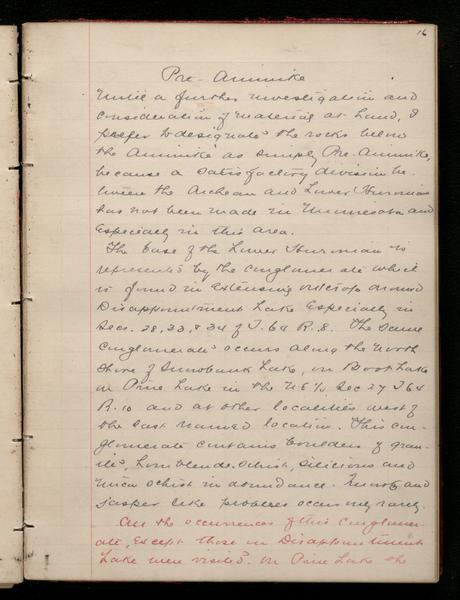 16
Pre-Animike
Until a further investigation and
consideration of material at hand, I
prefer to designate the rocks below
the Animike as simply Pre-Animike,
because a satisfactory division be-
tween the Archean and Lower Huronian
has not been made in Minnesota and
especially in this area.
The base of the Lower Huronian is
represented by the conglomerate which
is found in extensive outcrop around
Disappointment Lake especially in
Secs. 28, 33, & 34 of T. 64 R. 8. The same
conglomerate occurs along the north
shore of Snowbank Lake, on Boot Lake
on Pine Lake in the NE ¼ Sec 27 T 64
R. 10 and at other localities west of
the last named location. This con-
glomerate contains boulders of gran-
ite, hornblende schist, silicious and
mica schist in abundance. and
jasper like pebbles occur only rarely.
All the occurrences of this conglomer-
ate, except those on Disappointment
Lake were visited. On Pine Lake the